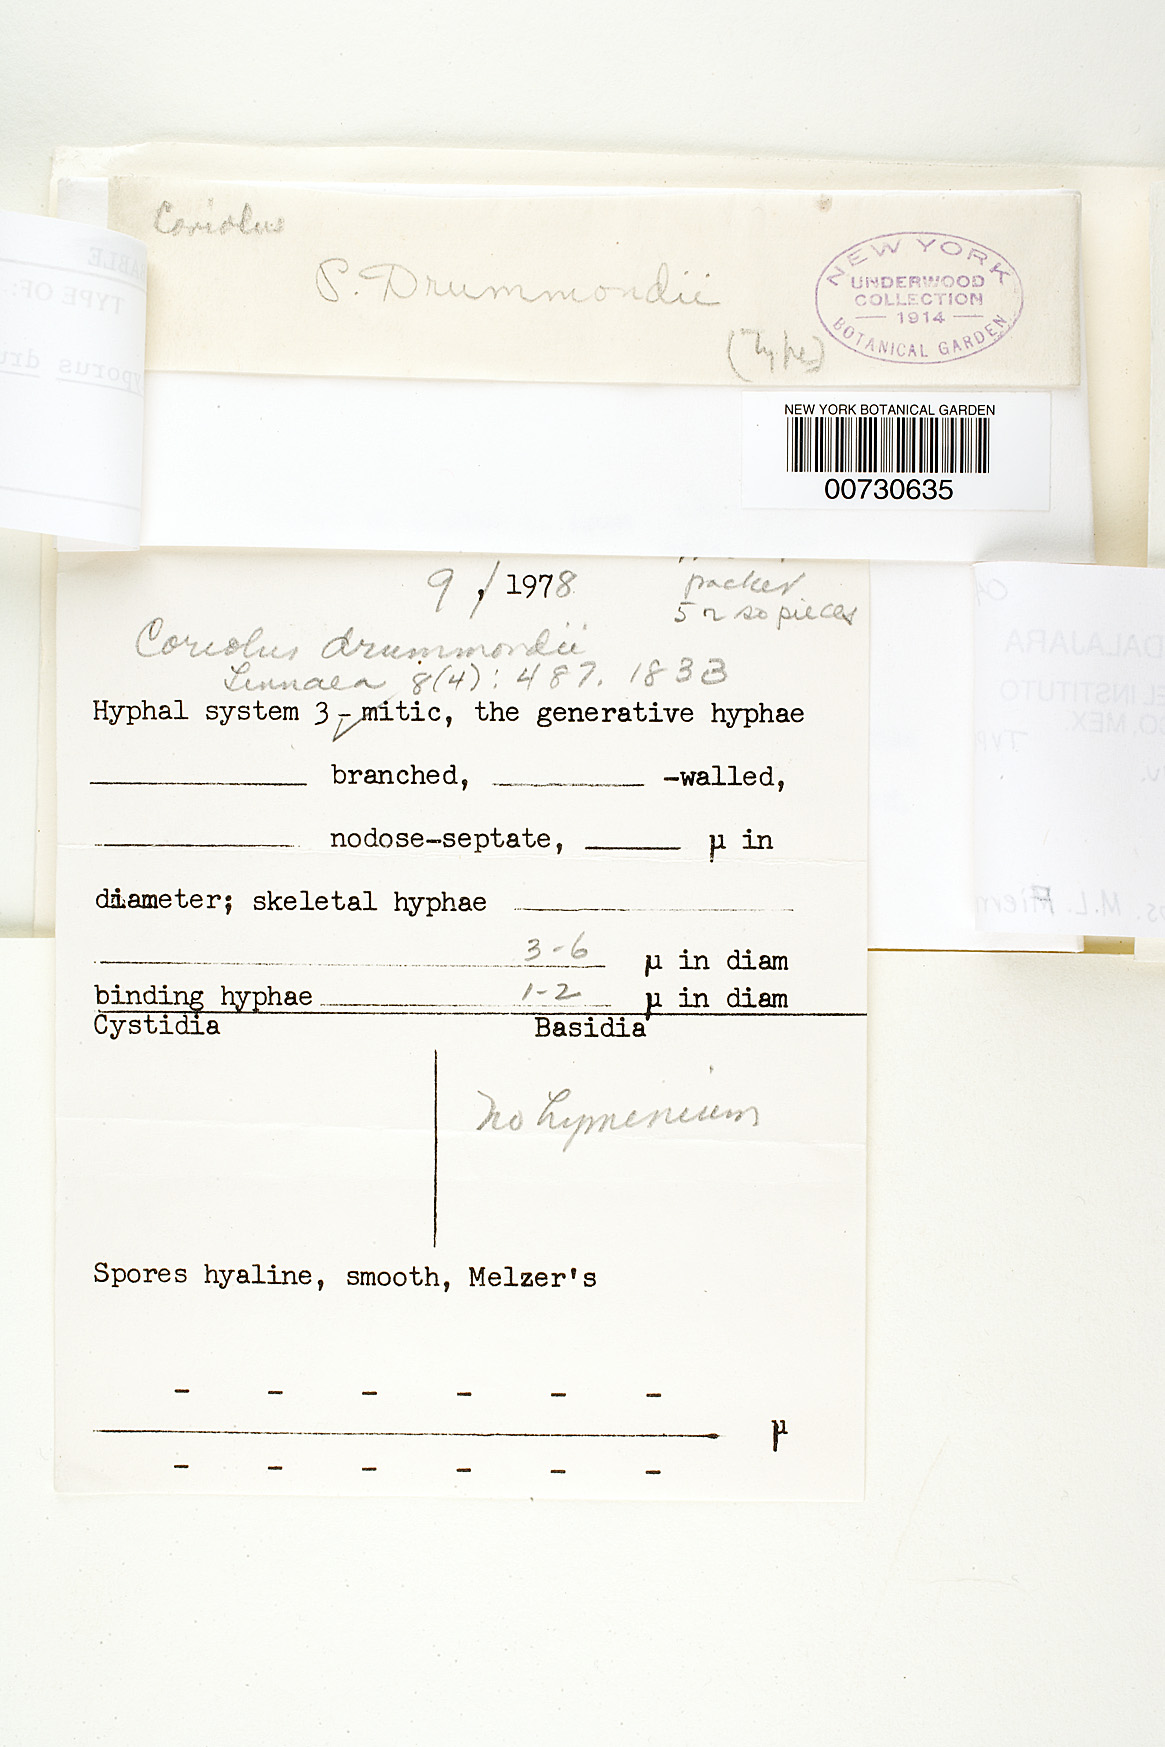 Coriolus
P. Drummondii
(Type)
NEW YORK
UNDERWOOD
COLLECTION
— 1914 —
BOTANICAL GARDEN
NEW YORK BOTANICAL GARDEN
00730635
9 , 1978
packet
5 n so pieces
Coriolus drummondii
Linnaea 8(4): 487. 1833
Hyphal system 3-mitic, the generative hyphae
branched, -walled,
nodose-septate, µ in
diameter; skeletal hyphae
3-6 µ in diam
binding hyphae 1-2 µ in diam
Cystidia Basidia
No hymenium
Spores hyaline, smooth, Melzer's
- - - - - -
µ
- - - - - -